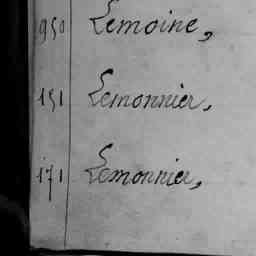 950 Lemoine,
151 Lemonnier,
171 Lemonnier,